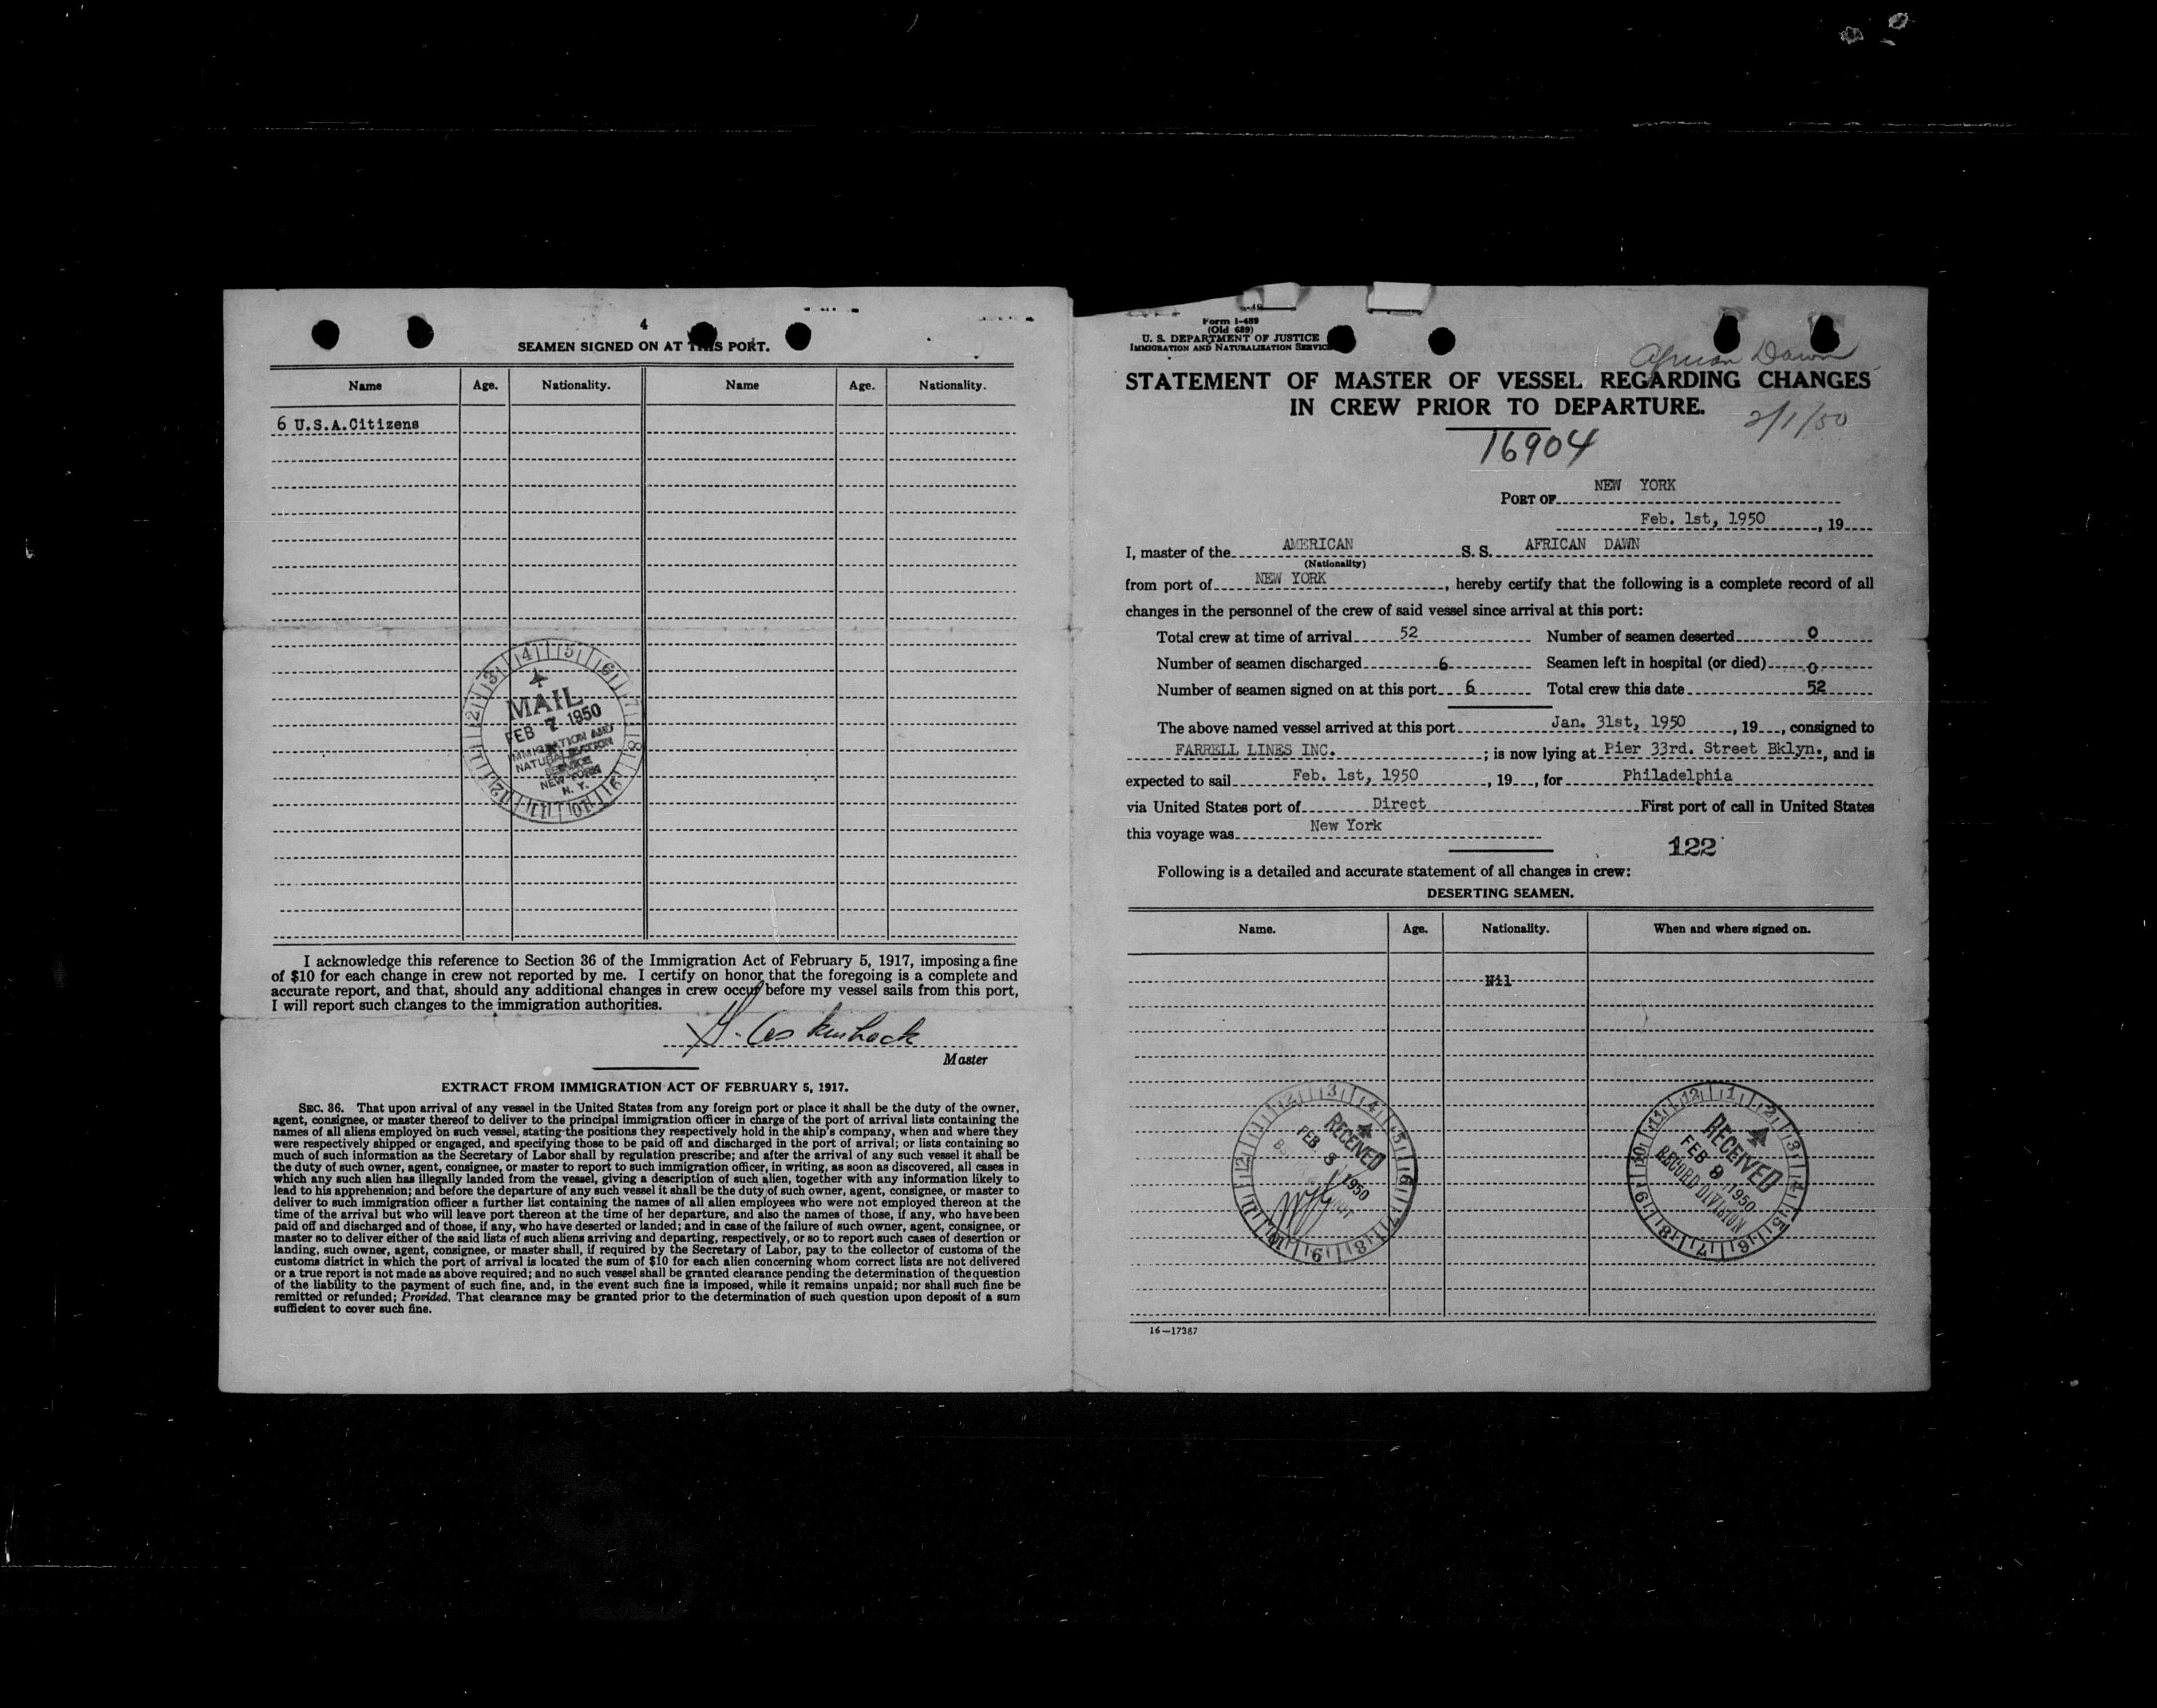 4
SEAMEN SIGNED ON AT THIS PORT.
Name Age. Nationality. Name Age. Nationality.
6 U.S.A.Citizens
MAIL
FEB 7 1950
IMMIGRATION AND
NATURALIZATION
SERVICE
NEW YORK
N. Y.
I acknowledge this reference to Section 36 of the Immigration Act of February 5, 1917, imposing a fine
of $10 for each change in crew not reported by me. I certify on honor that the foregoing is a complete and
accurate report, and that, should any additional changes in crew occur before my vessel sails from this port,
I will report such changes to the immigration authorities.
Master
EXTRACT FROM IMMIGRATION ACT OF FEBRUARY 5, 1917.
SEC. 36. That upon arrival of any vessel in the United States from any foreign port or place it shall be the duty of the owner,
agent, consignee, or master thereof to deliver to the principal immigration officer in charge of the port of arrival lists containing the
names of all aliens employed on such vessel, stating the positions they respectively hold in the ship's company, when and where they
were respectively shipped or engaged, and specifying those to be paid off and discharged in the port of arrival; or lists containing so
much of such information as the Secretary of Labor shall by regulation prescribe; and after the arrival of any such vessel it shall be
the duty of such owner, agent, consignee, or master to report to such immigration officer, in writing, as soon as discovered, all cases in
which any such alien has illegally landed from the vessel, giving a description of such alien, together with any information likely to
lead to his apprehension; and before the departure of any such vessel it shall be the duty of such owner, agent, consignee, or master to
deliver to such immigration officer a further list containing the names of all alien employees who were not employed thereon at the
time of the arrival but who will leave port thereon at the time of her departure, and also the names of those, if any, who have been
paid off and discharged and of those, if any, who have deserted or landed; and in case of the failure of such owner, agent, consignee, or
master so to deliver either of the said lists of such aliens arriving and departing, respectively, or so to report such cases of desertion or
landing, such owner, agent, consignee, or master shall, if required by the Secretary of Labor, pay to the collector of customs of the
customs district in which the port of arrival is located the sum of $10 for each alien concerning whom correct lists are not delivered
or a true report is not made as above required; and no such vessel shall be granted clearance pending the determination of the question
of the liability to the payment of such fine, and, in the event such fine is imposed, while it remains unpaid; nor shall such fine be
remitted or refunded; Provided, That clearance may be granted prior to the determination of such question upon deposit of a sum
sufficient to cover such fine.
Form I-489
(Old 689)
U. S. DEPARTMENT OF JUSTICE
IMMIGRATION AND NATURALIZATION SERVICE
African Dawn
STATEMENT OF MASTER OF VESSEL REGARDING CHANGES
IN CREW PRIOR TO DEPARTURE.
2/1/50
16904
PORT OF NEW YORK
Feb. 1st, 1950, 19
I, master of the AMERICAN S. S. AFRICAN DAWN
(Nationality)
from port of NEW YORK, hereby certify that the following is a complete record of all
changes in the personnel of the crew of said vessel since arrival at this port:
Total crew at time of arrival 52 Number of seamen deserted 0
Number of seamen discharged 6 Seamen left in hospital (or died) 0
Number of seamen signed on at this port 6 Total crew this date 52
The above named vessel arrived at this port Jan. 31st, 1950, 19, consigned to
FARRELL LINES INC.; is now lying at Pier 33rd. Street Bklyn., and is
expected to sail Feb. 1st, 1950, 19, for Philadelphia
via United States port of Direct First port of call in United States
this voyage was New York
122
Following is a detailed and accurate statement of all changes in crew:
DESERTING SEAMEN.
Name. Age. Nationality. When and where signed on.
Nil
RECEIVED
FEB 8 1950
RECEIVED
FEB 8 1950
RECORD DIVISION
16—17387